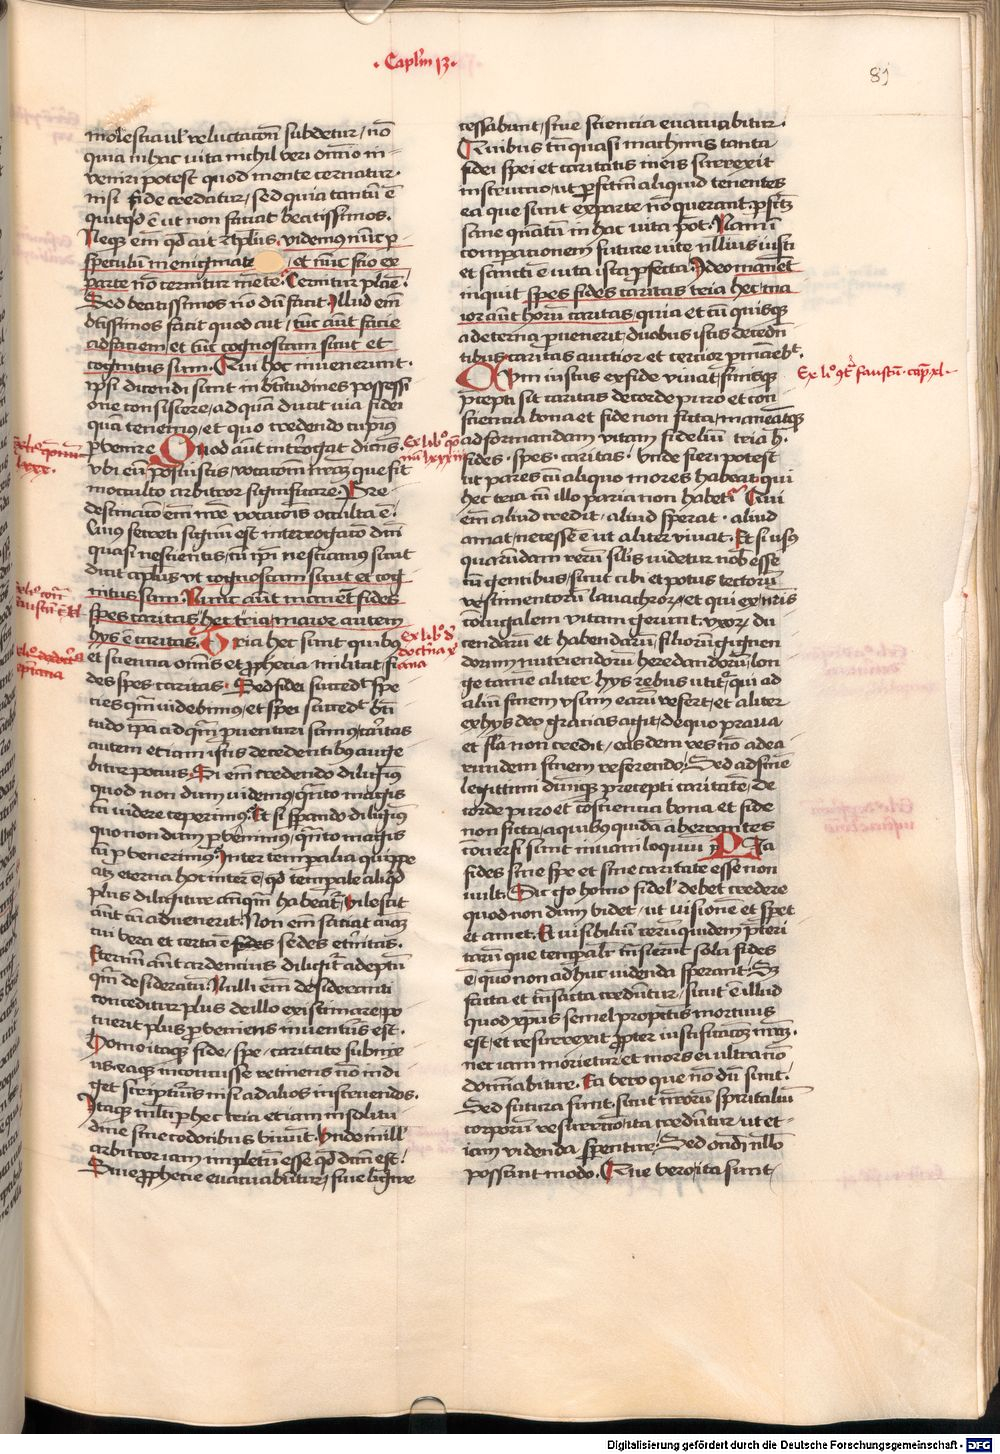 · Capl'm 13 ·
81
molestia ul' reluctacōn subdetur, nō
quia in hac uita nichil veri oīmo in-
veniri potest quod mente cernatur.
nisi fide credatur, sed quia tantū ē
quitqd' ē ut non faciat beatissimos.
Neqz em̄ qd' ait aplus. videmus nūc p
speculū in enigmate, et nūc scio ex
parte nō cernitur mēte. Cernitur planē.
Sed beatissimos nō dū facit. Illud em̄
btissimos facit quod ait, tūc aūt facie
ad faciem, et tūc cognoscam sicut et
cognitus sum. Qui hoc invenerunt.
ipsi dicendi sunt in btitudinis possessi
one consistere, ad quā ducit via fidei
quā tenemus, et quo credendo cupimus
pvenire. Quod aūt int'rogat dicens.
vbi eū posuistis, vocatōnem nrāz que fit
in occulto arbitror significare. Pre
destinatio em̄ nre vocatōis occulta ē.
Cuius secreti signum est interrogatio dnī
quasi nescientis, cū ipī nesciamus sicut
dicit aplus vt cognoscam sicut et cog
nitus sum. Nunc aūt manēt fides
spes caritas hec tria, maior autem
hys ē caritas. Tria hec sunt quibus
et sciencia om̄is et prophecia militat, fi
des spes caritas. Sed fidei succedet spe
cies quam videbimus, et spei succedet bti
tudo ipa ad quam pventuri sumus, caritas
autem etiam istis decedentibus auge
bitur pocius. Si em̄ credendo diligimus
quod non dum videmus, quanto magis
cū videre ceperimus. Et si sperando diligimus
quo non dum pvenimus, quanto magis
cū pvenerimus. Inter temporalia quippe
atqz eterna hoc interē, qd' temporale aliqd'
plus diligitur anteqm habeatur, vilescit
aūt cū advenerit. Non em̄ saciat aīaz
cui vera et certa ē sedes eternitas.
Eternū aūt ardencius diligitur adeptū
qm desideratū. Nulli em̄ desideranti
conceditur plus de illo existimare, po
tuerit plus pveniens inventurus est.
Homo itaqz fide, spe, caritate subnix
us, eaqz inconcusse retinens nō indi
get scripturis nisi ad alios instruendos.
Itaqz multi p hec tria etiam in solitu
dine sine codicibus vivūt. Unde in illis
arbitror iam impletū esse qd' dictum est.
Sive prophecie evacuabūtur, sive ligwe
cessabunt, sive sciencia evacuabitur.
Quibus tn̄ quasi machinis tanta
fidei spei et caritatis in eis surrexit
instructio, ut perfectum aliquid tenentes
ea que sunt ex parte nō querant. perfectum
sane quantū in hac vita pot. Nam in
comparacionem future vite nullius iusti
et sancti ē vita ista perfecta. Ideo manēt
inquit spes fides caritas tria hec, ma
ior aūt horū caritas, quia et cū quisqz
ad eterna pervenerit, duobus istis deceden
tibus caritas auctior et cercior pmanebit.
Cum iustus ex fide vivat, finisqz
precepti sit caritas de corde puro et con
sciencia bona et fide non ficta, maneātqz
ad formandam vitam fidelium tria hec.
fides. spes. caritas. Unde fieri potest
ut pares cū aliquo mores habeat qui
hec tria cū illo paria non habet. Qui
em̄ aliud credit, aliud sperat. aliud
amat, necesse ē ut aliter vivat. Et si usus
quarūdam rerū similis videtur nobis esse
cū gentibus, sicut cibi et potus tectorū
vestimentorū lavachrorū, et qui ex nris
coniugalem vitam gerunt, vxorū du
cendarū et habendarū, filiorū gignen
dorum nutriendorū heredandorū, lon
ge tamen aliter hys rebus utitur, qui ad
aliū finem vsum earū refert, et aliter
ex hys deo gracias agit, de quo prava
et falsa non credit, easdem res nō ad ea
rundem finem referendo. Sed ad finē
legittimi divinqz precepti caritatē, de
corde puro et cōsciencia bona et fide
non ficta, a quibus quidā aberrantes
cōversi sunt in vaniloquium. Pia
fides sine spe et sine caritate esse non
vult. Sic ergo homo fidelis debet credere
quod non dum videt, ut visionē et speret
et amet. Et visibilium rerū quidem preteri
tarū que temporaliter transierunt sola fides
ē, quo non adhuc videnda sperant. Sed
facta et transacta creduntur, sicut ē illud
quod xpus semel pro peccatis mortuus
est, et resurrexit propter iustificacōem nram.
nec iam morietur et mors ei ultra nō
dominabitur. Ea vero que nō dū sunt.
Sed futura sunt. sicut nrorū spiritaliū
corporum resurrectio, ita creduntur, ut et-
iam videnda sperentur. Sed ondi nullo
possunt modo. Que vero ita sunt
Ex li° 9t' faustū · cap · xl ·
Ex lib° d'
doctrīa x
ana
Digitalisierung gefördert durch die Deutsche Forschungsgemeinschaft - DFG